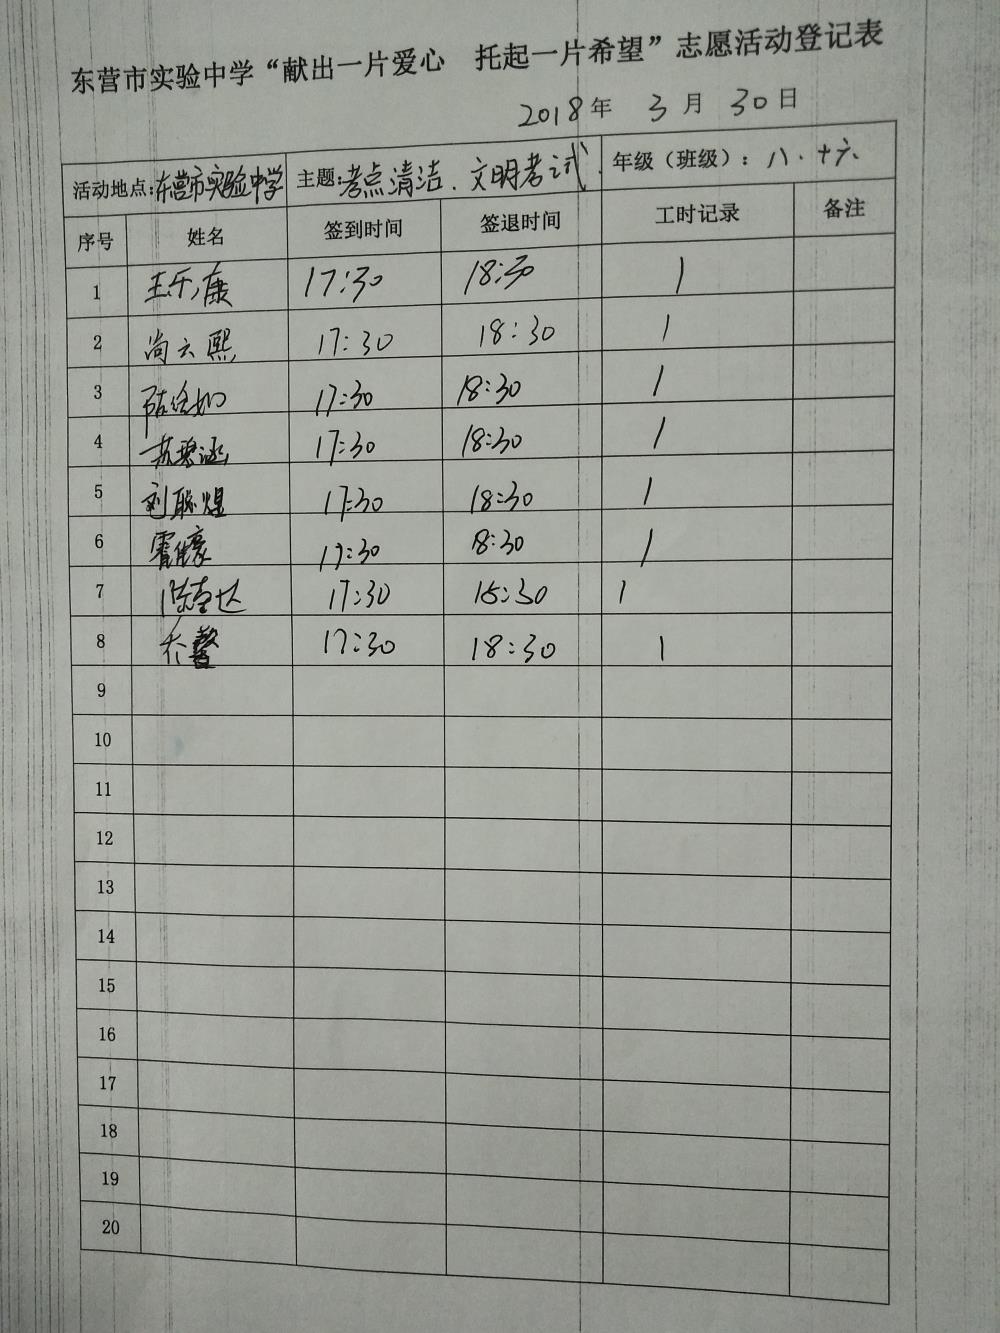 东营市实验中学“献出一片爱心 托起一片希望”志愿活动登记表
2018年 3月 30日
活动地点:东营市实验中学 主题:考点清洁、文明考试、 年级（班级）：八·十六、
序号 姓名 签到时间 签退时间 工时记录 备注
1 王乐康 17:30 18:30 1
2 尚云熙 17:30 18:30 1
3 17:30 18:30 1
4 苏碧涵 17:30 18:30 1
5 刘聪煜 17:30 18:30 1
6 17:30 18:30 1
7 17:30 18:30 1
8 乔馨 17:30 18:30 1
9
10
11
12
13
14
15
16
17
18
19
20